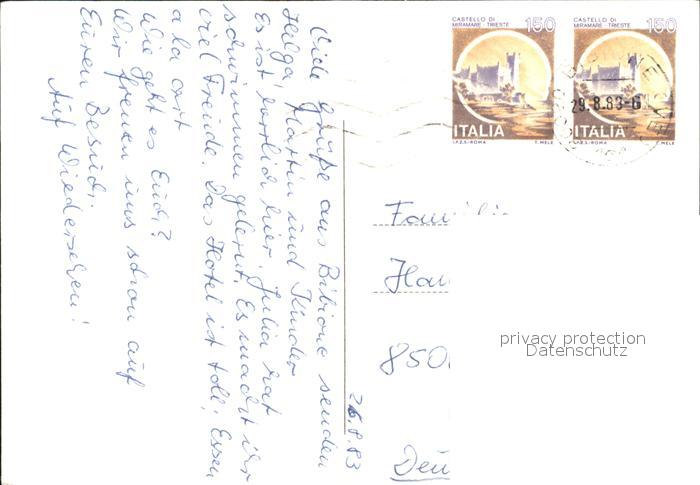 CASTELLO DI
MIRAMARE - TRIESTE
150
ITALIA
I.P.Z.S. - ROMA
T. MELE
CASTELLO DI
MIRAMARE - TRIESTE
150
ITALIA
I.P.Z.S. - ROMA
T. MELE
29.8.83-6
26.8.83
Viele Grüße aus Bibione senden
Helga, Martin und Kinder
Es ist herrlich hier. Julia hat
schwimmen gelernt. Es macht ihr
viel Freude. Das Hotel ist toll, Essen
a la cart
Wie geht es Euch?
Wir freuen uns schon auf
Euren Besuch.
Auf Wiedersehen!
Familie
Hau
850
Deu
privacy protection
Datenschutz